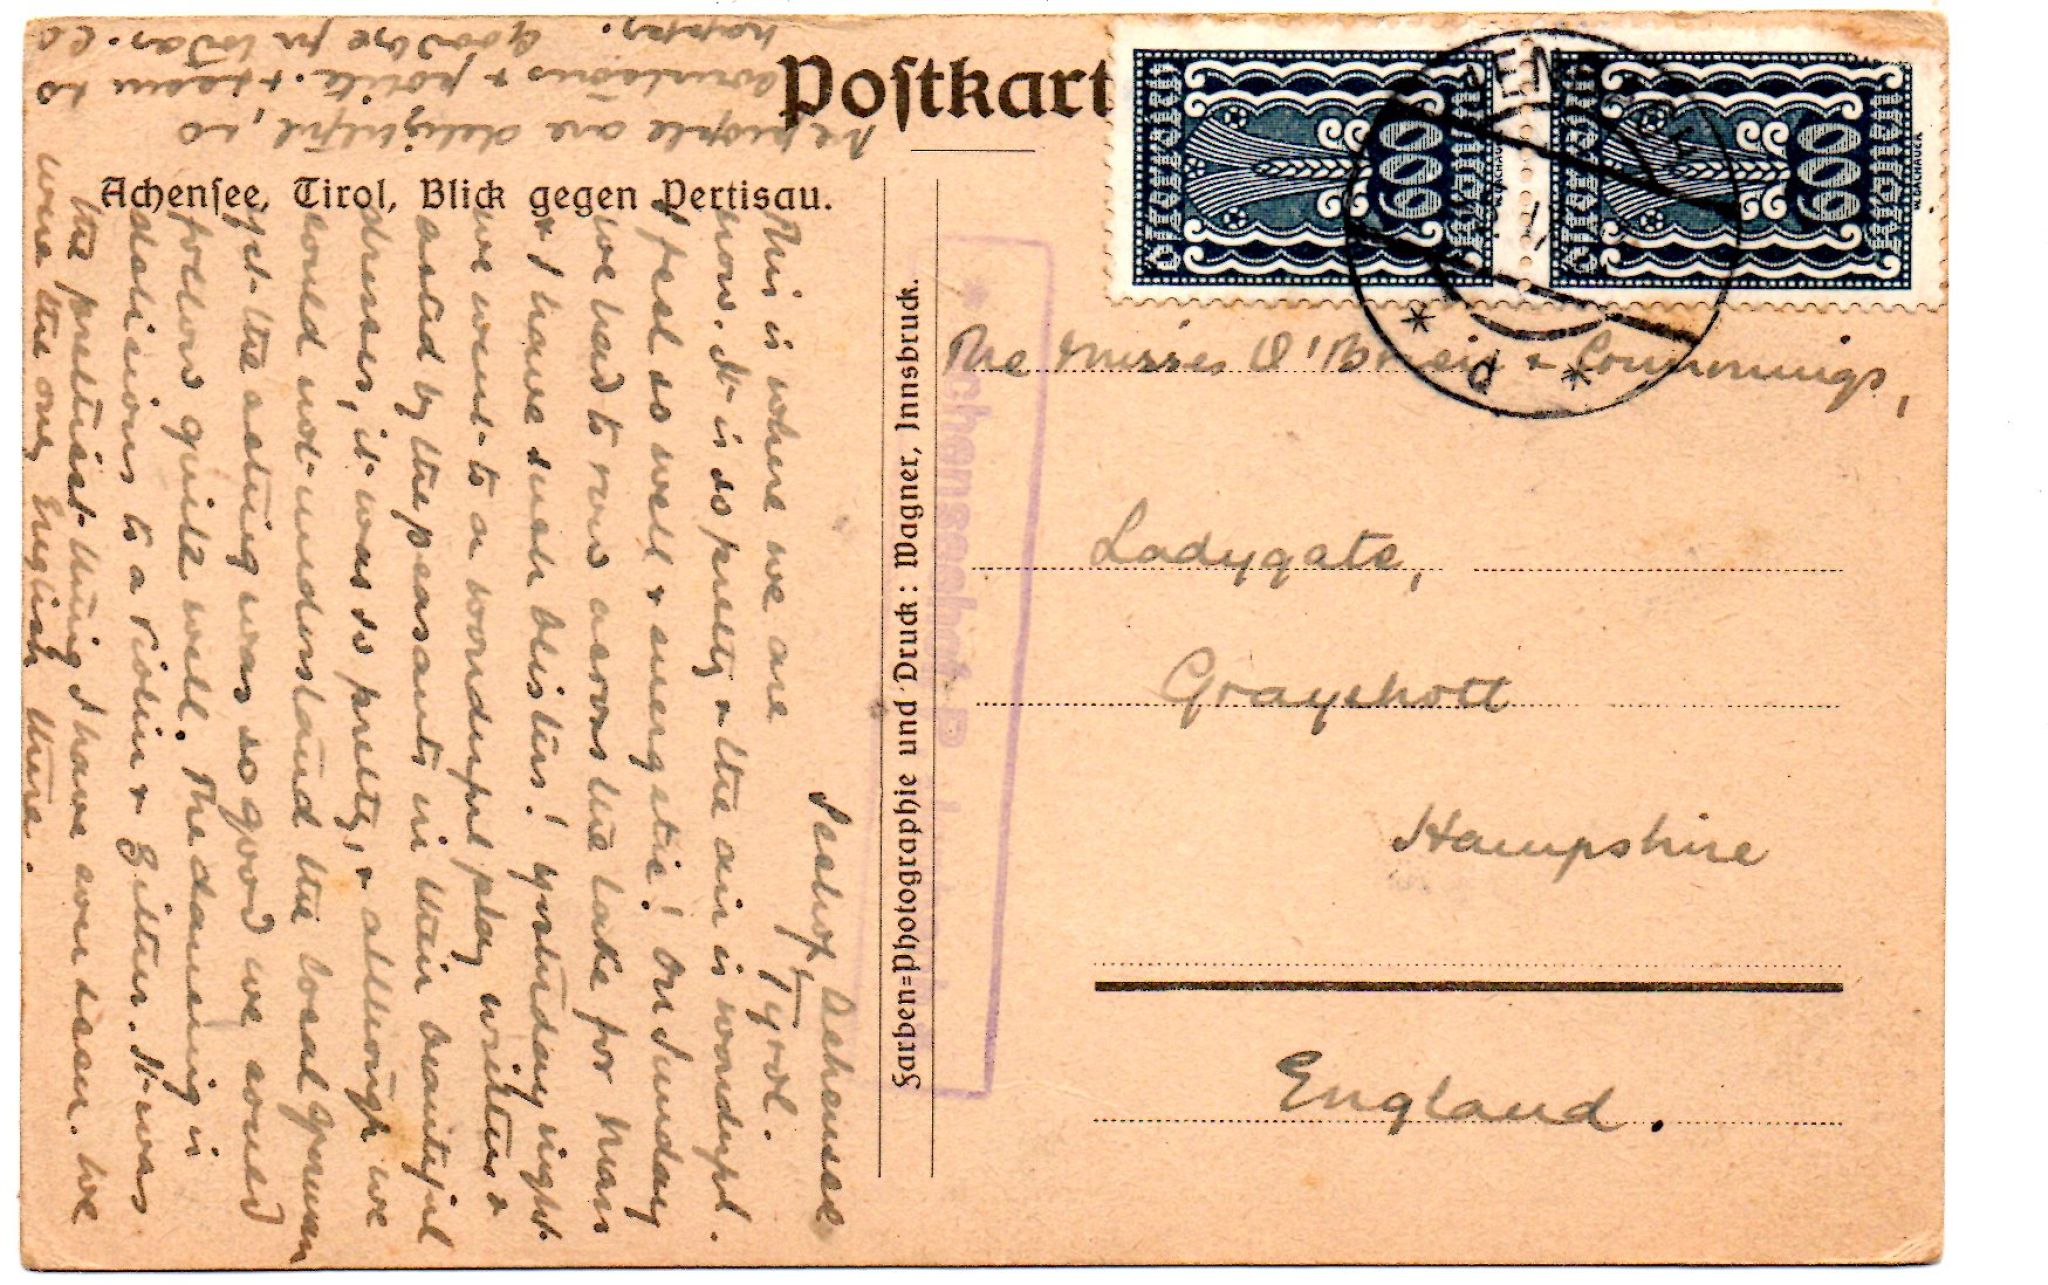 Postkart
Achensee, Tirol, Blick gegen Pertisau.
Farben-Photographie und Druck: Wagner, Innsbruck.
600
600
DEUTSCHÖSTERREICH
W. DACHAUER
Seehof, Achensee
Tyrol.
This is where we are
now. It is so pretty & the air is wonderful.
I feel so well & energetic! On Sunday
we had to row across the lake for Mass
& I have such blisters! Yesterday night
we went to a wonderful play written &
acted by the peasants in their beautiful
dresses, it was so pretty, & although we
could not understand the local German
yet the acting was so good we could
follow quite well. The dancing is
delicious to a violin & Zither. It was
the prettiest thing I have ever seen. We
were the only English there.
The people are delightful, so
courteous & polite & seem so
happy. Goodbye for today.
The Misses O'Brien & Commings,
Ladygate,
Grayshott
Hampshire
England.